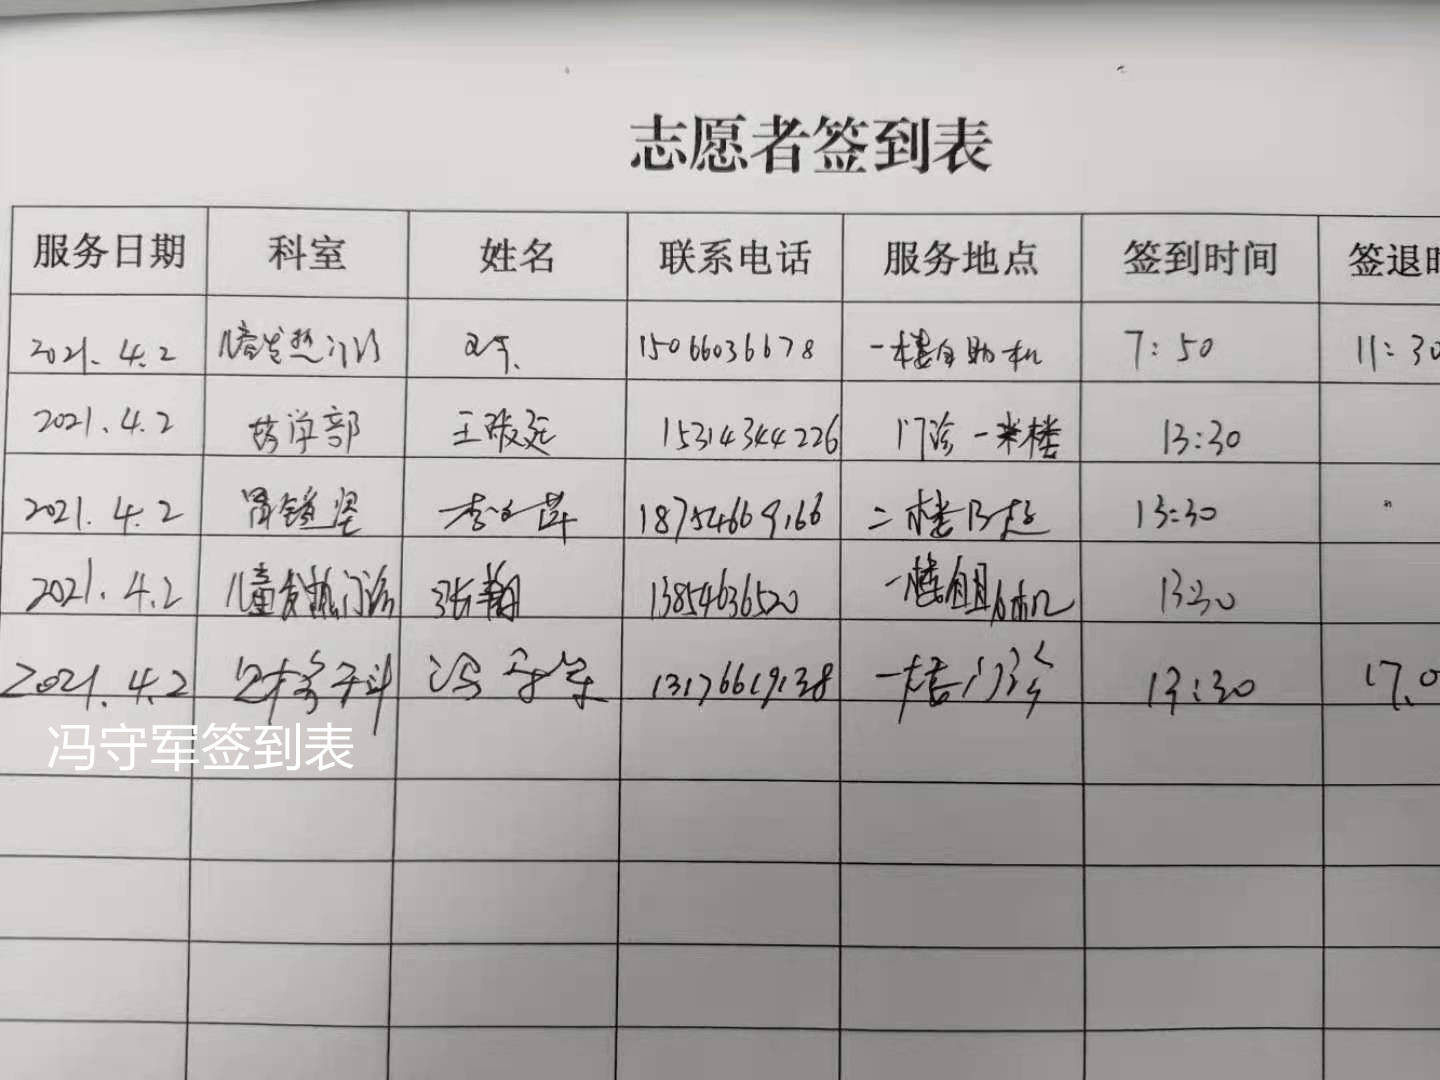 志愿者签到表
服务日期 科室 姓名 联系电话 服务地点 签到时间 签退时
2021.4.2 儿童发热门诊 15066036678 一楼自助机 7:50 11:30
2021.4.2 药学部 15314344226 门诊一米楼 13:30
2021.4.2 胃镜室 18754669166 二楼B超 13:30
2021.4.2 儿童发热门诊 张翔 13854636520 一楼自助机 13:30
2021.4.2 冯守军 13176619138 一楼门诊 13:30 17.0
冯守军签到表